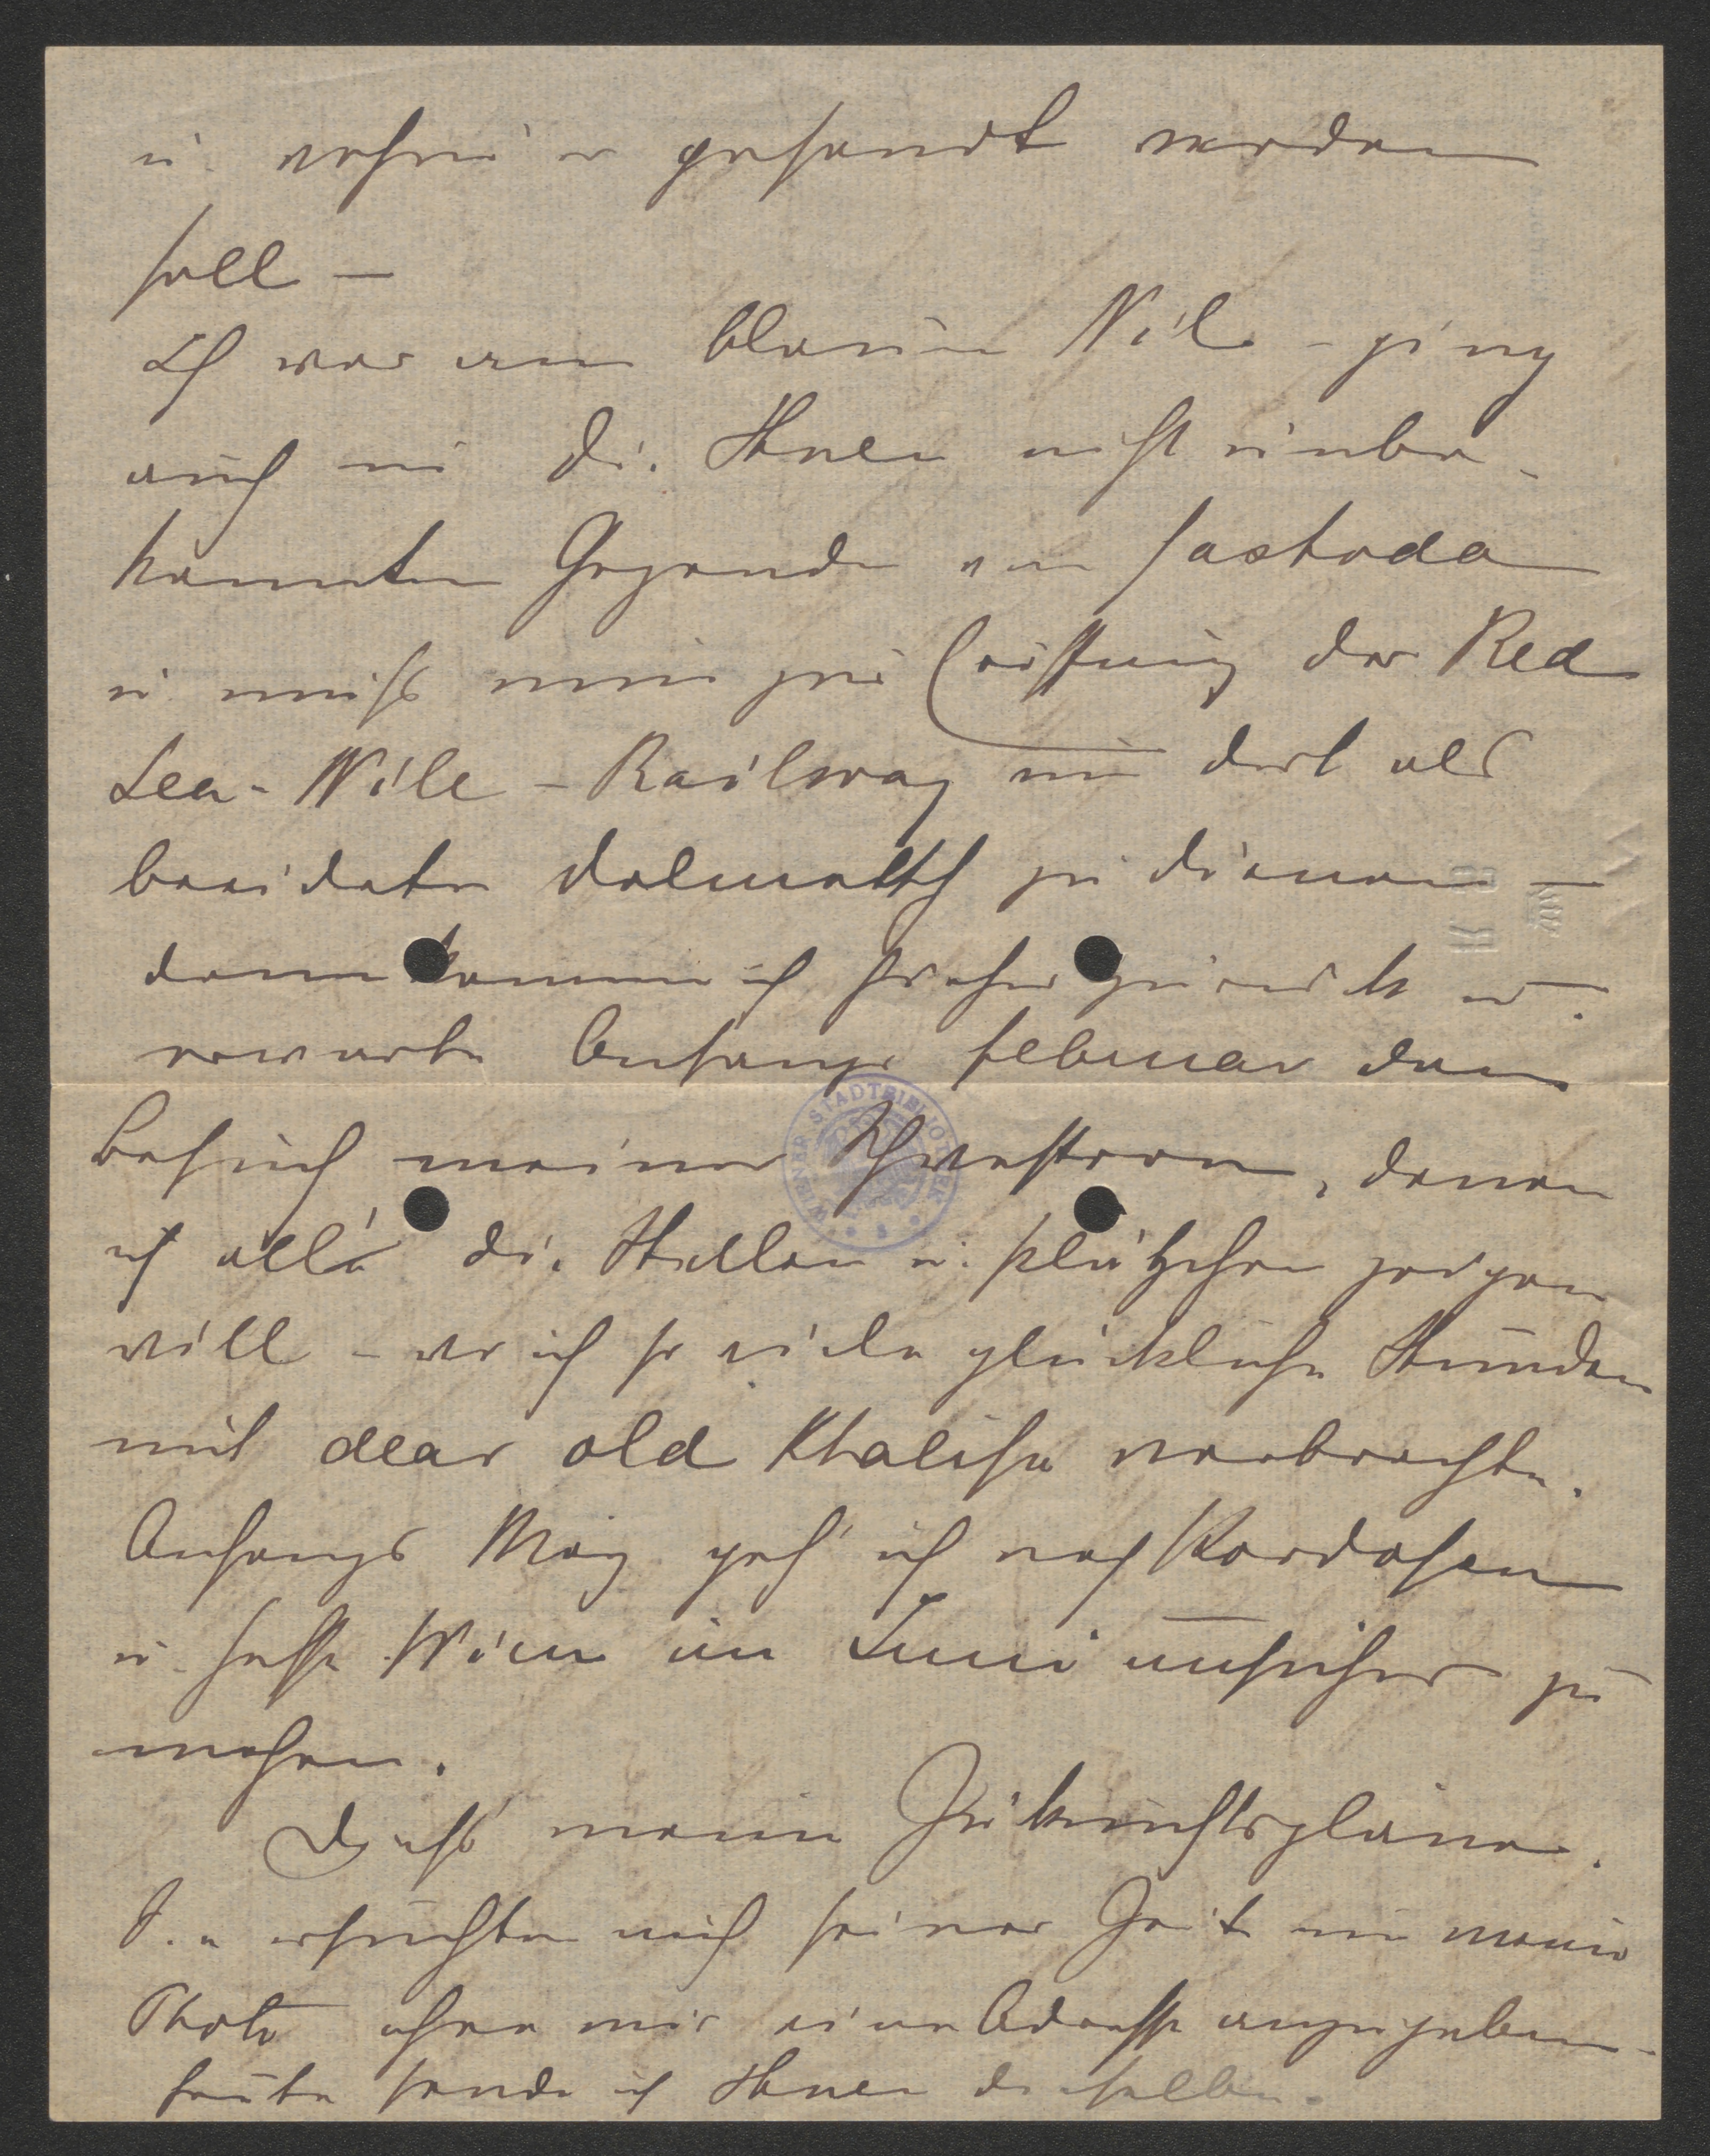 u. wohin er gesandt werden
soll —
Ich war am blauen Nil – ging
auch in die Ihnen nicht unbe-
kannten Gegenden von Faschoda
u. muß nun zur Eröffnung der Red
Sea-Nile-Railway um dort als
beeideter Dolmetsch zu dienen —
dann komme ich hierher zurück u.
erwarte Anfangs Februar den
Besuch meiner Schwestern, denen
ich alle die Stellen u. Plätzchen zeigen
will – wo ich so viele glückliche Stunden
mit dear old Khalifa verbrachte.
Anfangs May geh' ich nach Kordofan
u. hoffe Wien im Juni unsicher zu
machen.
Dies meine Zukunftspläne.
Sie ersuchten mich seiner Zeit um meine
Photo ohne mir eine Adresse anzugeben –
heute sende ich Ihnen dieselbe.
WIENER STADTBIBLIOTHEK